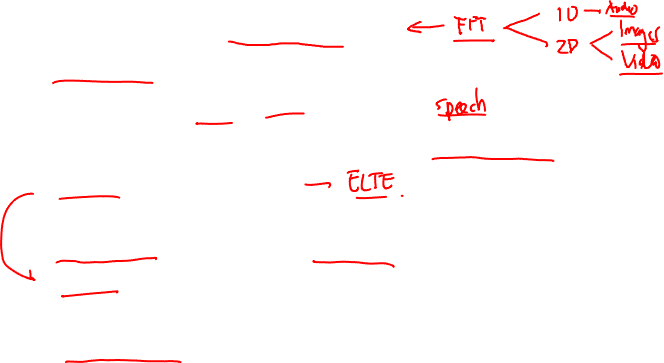 FFT
1D Audio
2D Images
Video
speech
ELTE